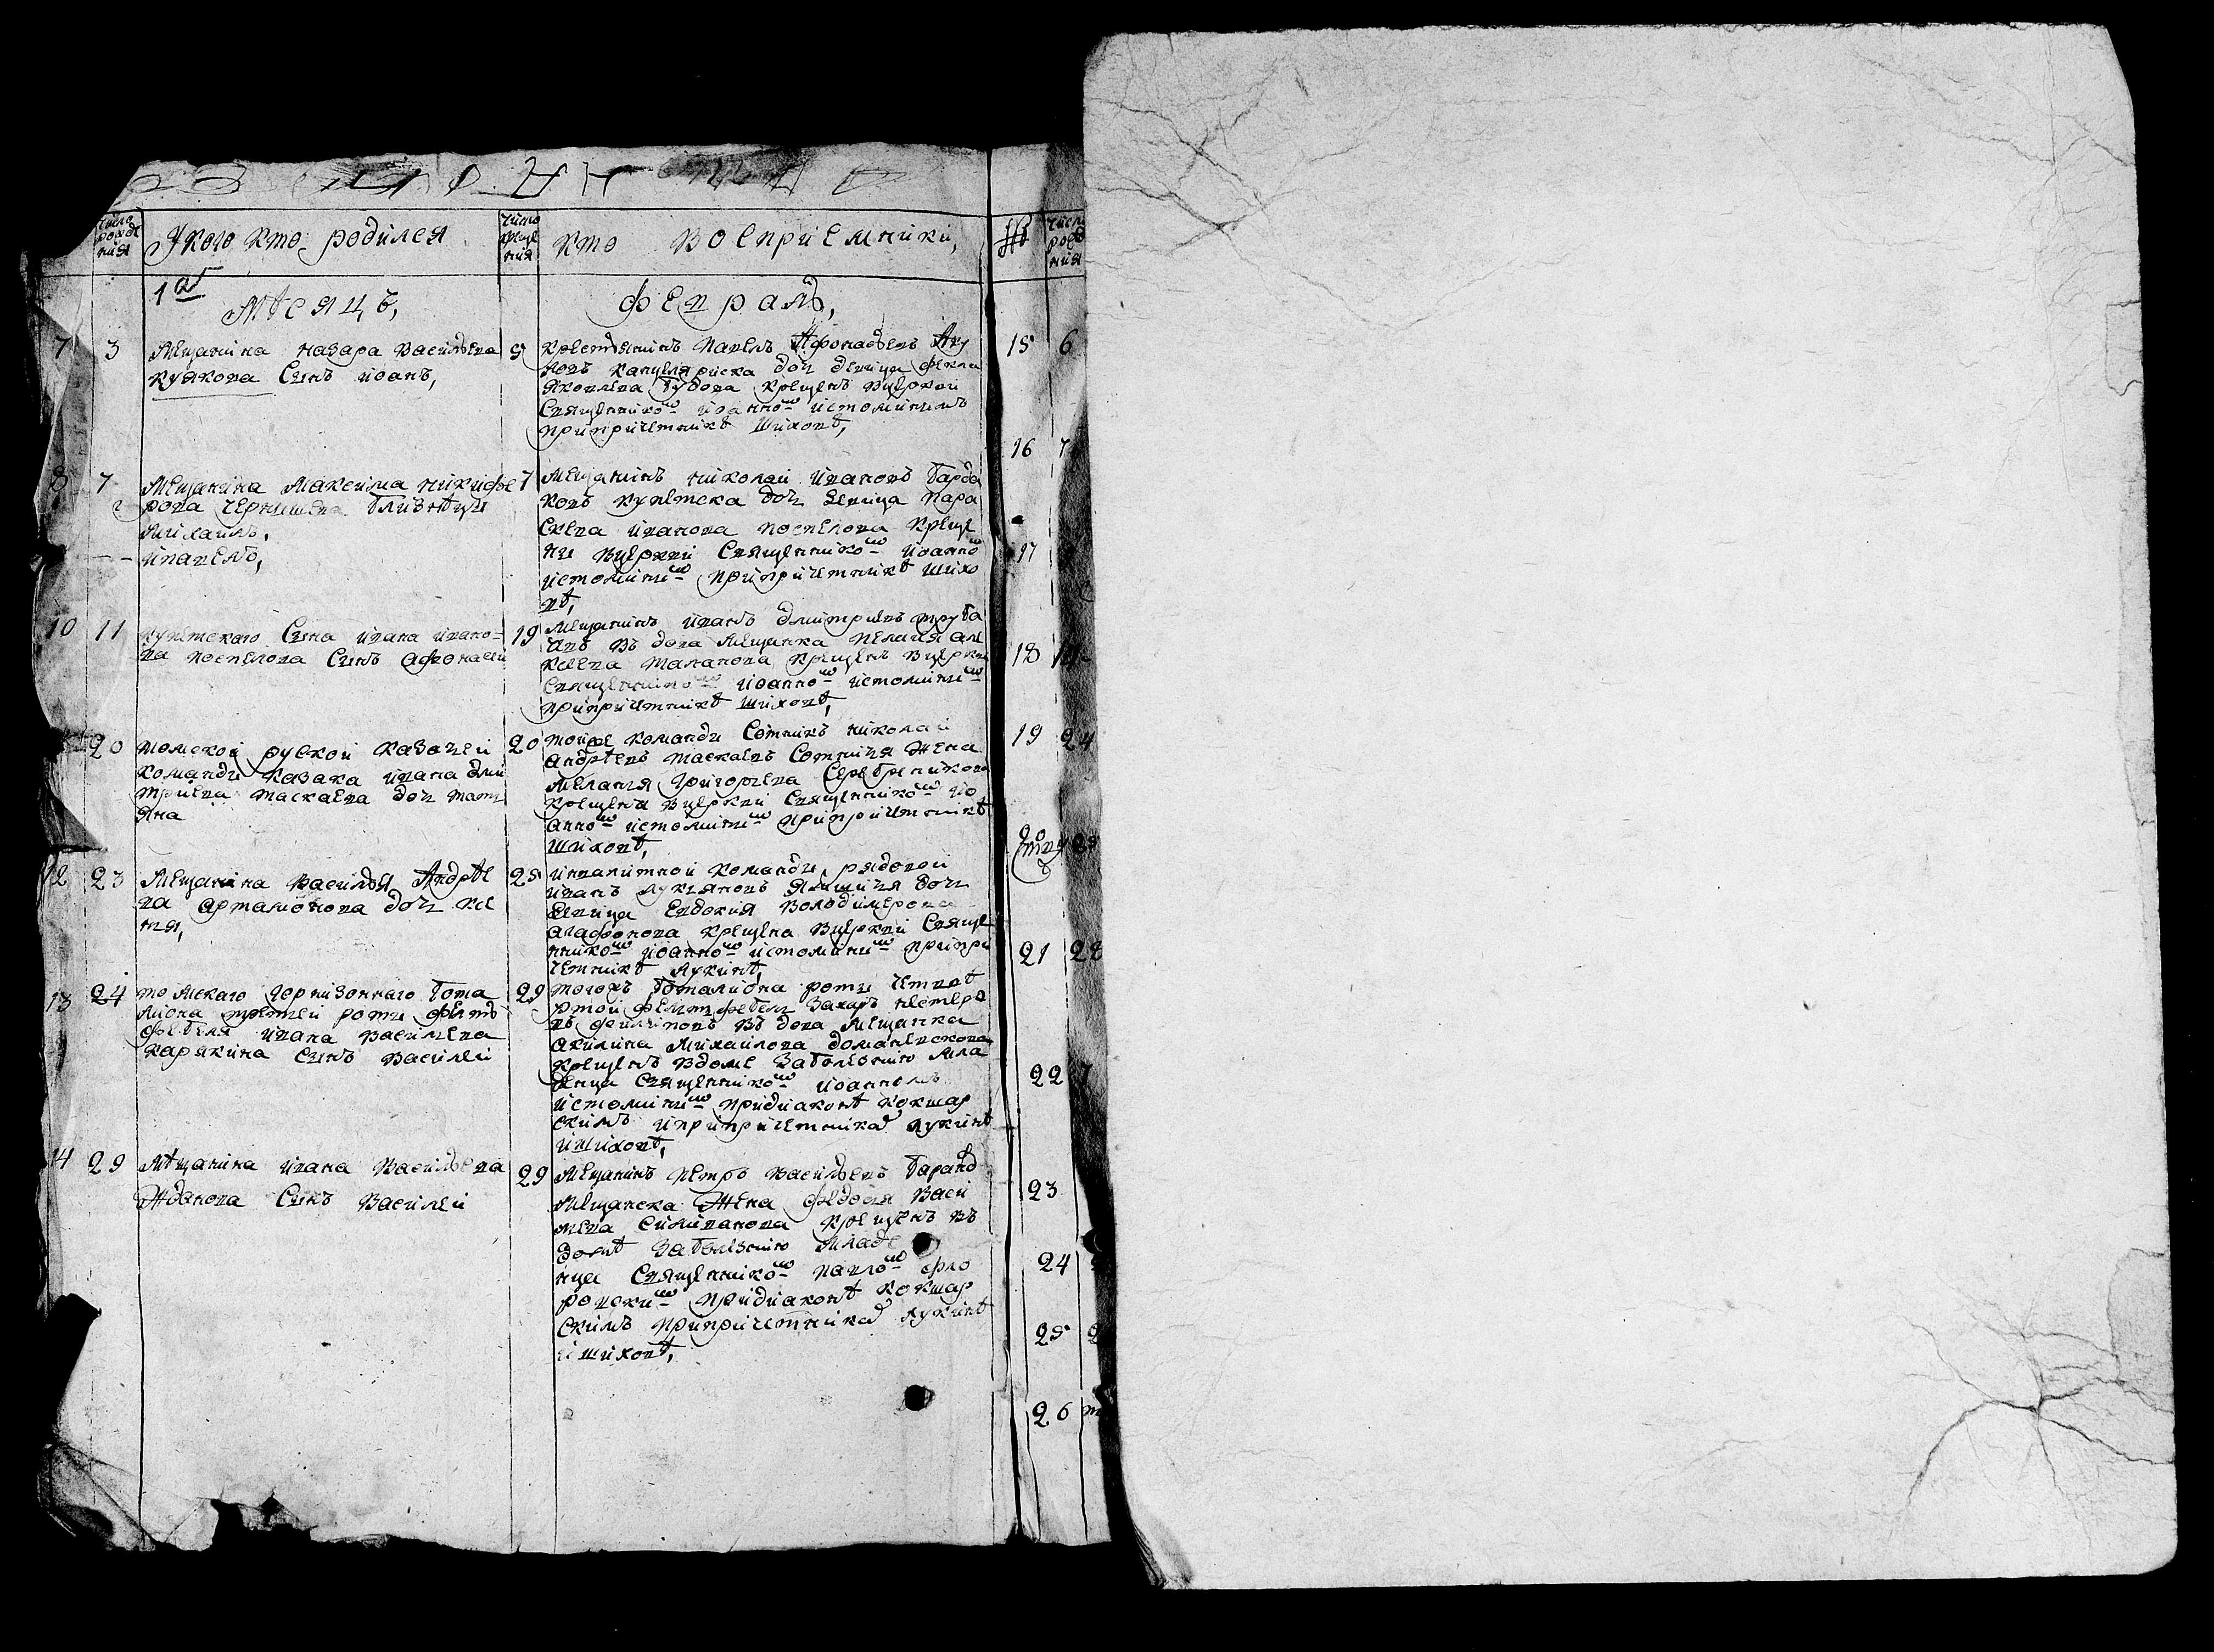 число рожде ния
У кого кто родился
число креще ния
кто восприемники,
№
1я
мѣсяцъ,
февраль,
7 3 Мещанина Назара Васильева
Куякова сынъ Иоанъ,
5 крестьянинъ Павелъ Афонасьевъ
канцеляриска дочь девица Фекла
Яковлева крещенъ вцеркви
священникомъ Иоанномъ Истоминымъ
при причетникѣ Шиховѣ,
8 7 Мещанина Максима Никифо
рова Чернышева близнѣцы
Михаилъ,
и Павелъ,
7 Мещанинъ Николай Ивановъ Барда
ковъ купетска дочь девица Пара
скева Иванова Поспелова креще
ны вцеркви священникомъ Иоанномъ
Истоминымъ при причетникѣ Шихо
вѣ,
10 11 купетскаго сына Ивана Ивано-
ва Поспелова сынъ Афонасий
19 Мещанинъ Иванъ Дмитриевъ
въ дова мещанка Пелагея Але
ксеева крещенъ вцеркви
священникомъ Иоанномъ Истоминымъ
при причетникѣ Шиховѣ,
20 томской руской казачей
команды казака Ивана Дми
триева Маскаева дочь Тать
яна
20 тойже команды сотникъ Николай
Андрѣевъ Маскаевъ сотничья жена
Меланья Григорьева Серебреникова
крещена вцеркви священникомъ Ио
анномъ Истоминымъ при причетникѣ
Шиховѣ,
12 23 Мещанина Василья Андрѣе
ва Артамонова дочь Ксе
ния,
25 инвалитной команды рядовой
Иванъ Лукьяновъ дочь
девица Евдокия Володимерова
Агафонова крещена вцеркви священ
никомъ Иоанномъ Истоминымъ при при
четникѣ Лукинѣ,
13 24 томскаго горнизоннаго бота
лиона третьей роты фельт
фебеля Ивана Васильева
Карякина сынъ Василей
29 тогожъ боталиона роты четвѣ
ртой фельтфебель Захаръ Нестеро
въ Филиповъ въ дова мещанка
Акилина Михайлова Доманевскова
крещенъ вдоме заболезнию мла
денца священникомъ Иоанномъ
Истоминымъ при диаконѣ Кокшар
скимъ и при причетникахъ Лукинѣ
и Шиховѣ,
14 29 Мѣщанина Ивана Васильева
Жданова сынъ Василей
29 Мещанинъ Петръ Васильевъ
мещанска жена Федосья Васи
льева Силиванова крещенъ въ
домѣ заболезнию младе
нца священникомъ Павломъ Фло
ровскимъ при диаконѣ Кокшар
скимъ при причетникахъ Лукинѣ
и Шиховѣ,
15 6
16 7
17
18
19 24
20
21 22
22 7
23
24
25
26